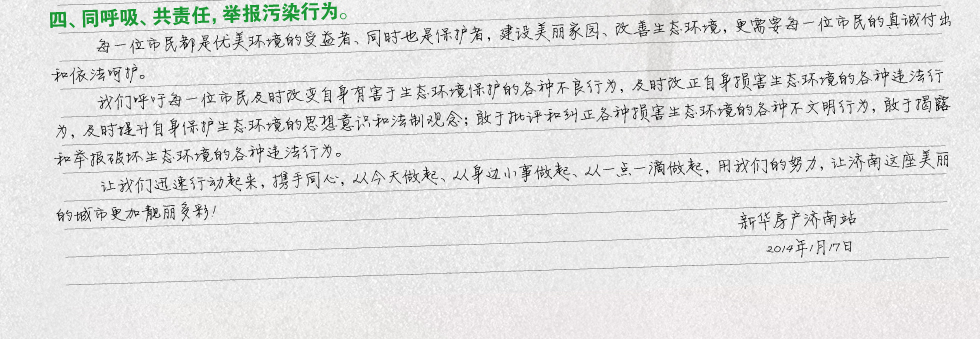 四、同呼吸、共责任，举报污染行为。
每一位市民都是优美环境的受益者、同时也是保护者，建设美丽家园、改善生态环境，更需要每一位市民的真诚付出
和依法呵护。
我们呼吁每一位市民及时改变自身有害于生态环境保护的各种不良行为，及时改正自身损害生态环境的各种违法行
为，及时提升自身保护生态环境的思想意识和法制观念；敢于批评和纠正各种损害生态环境的各种不文明行为，敢于揭露
和举报破坏生态环境的各种违法行为。
让我们迅速行动起来，携手同心，从今天做起、从身边小事做起、从一点一滴做起，用我们的努力，让济南这座美丽
的城市更加靓丽多彩！
新华房产济南站
2014年1月17日